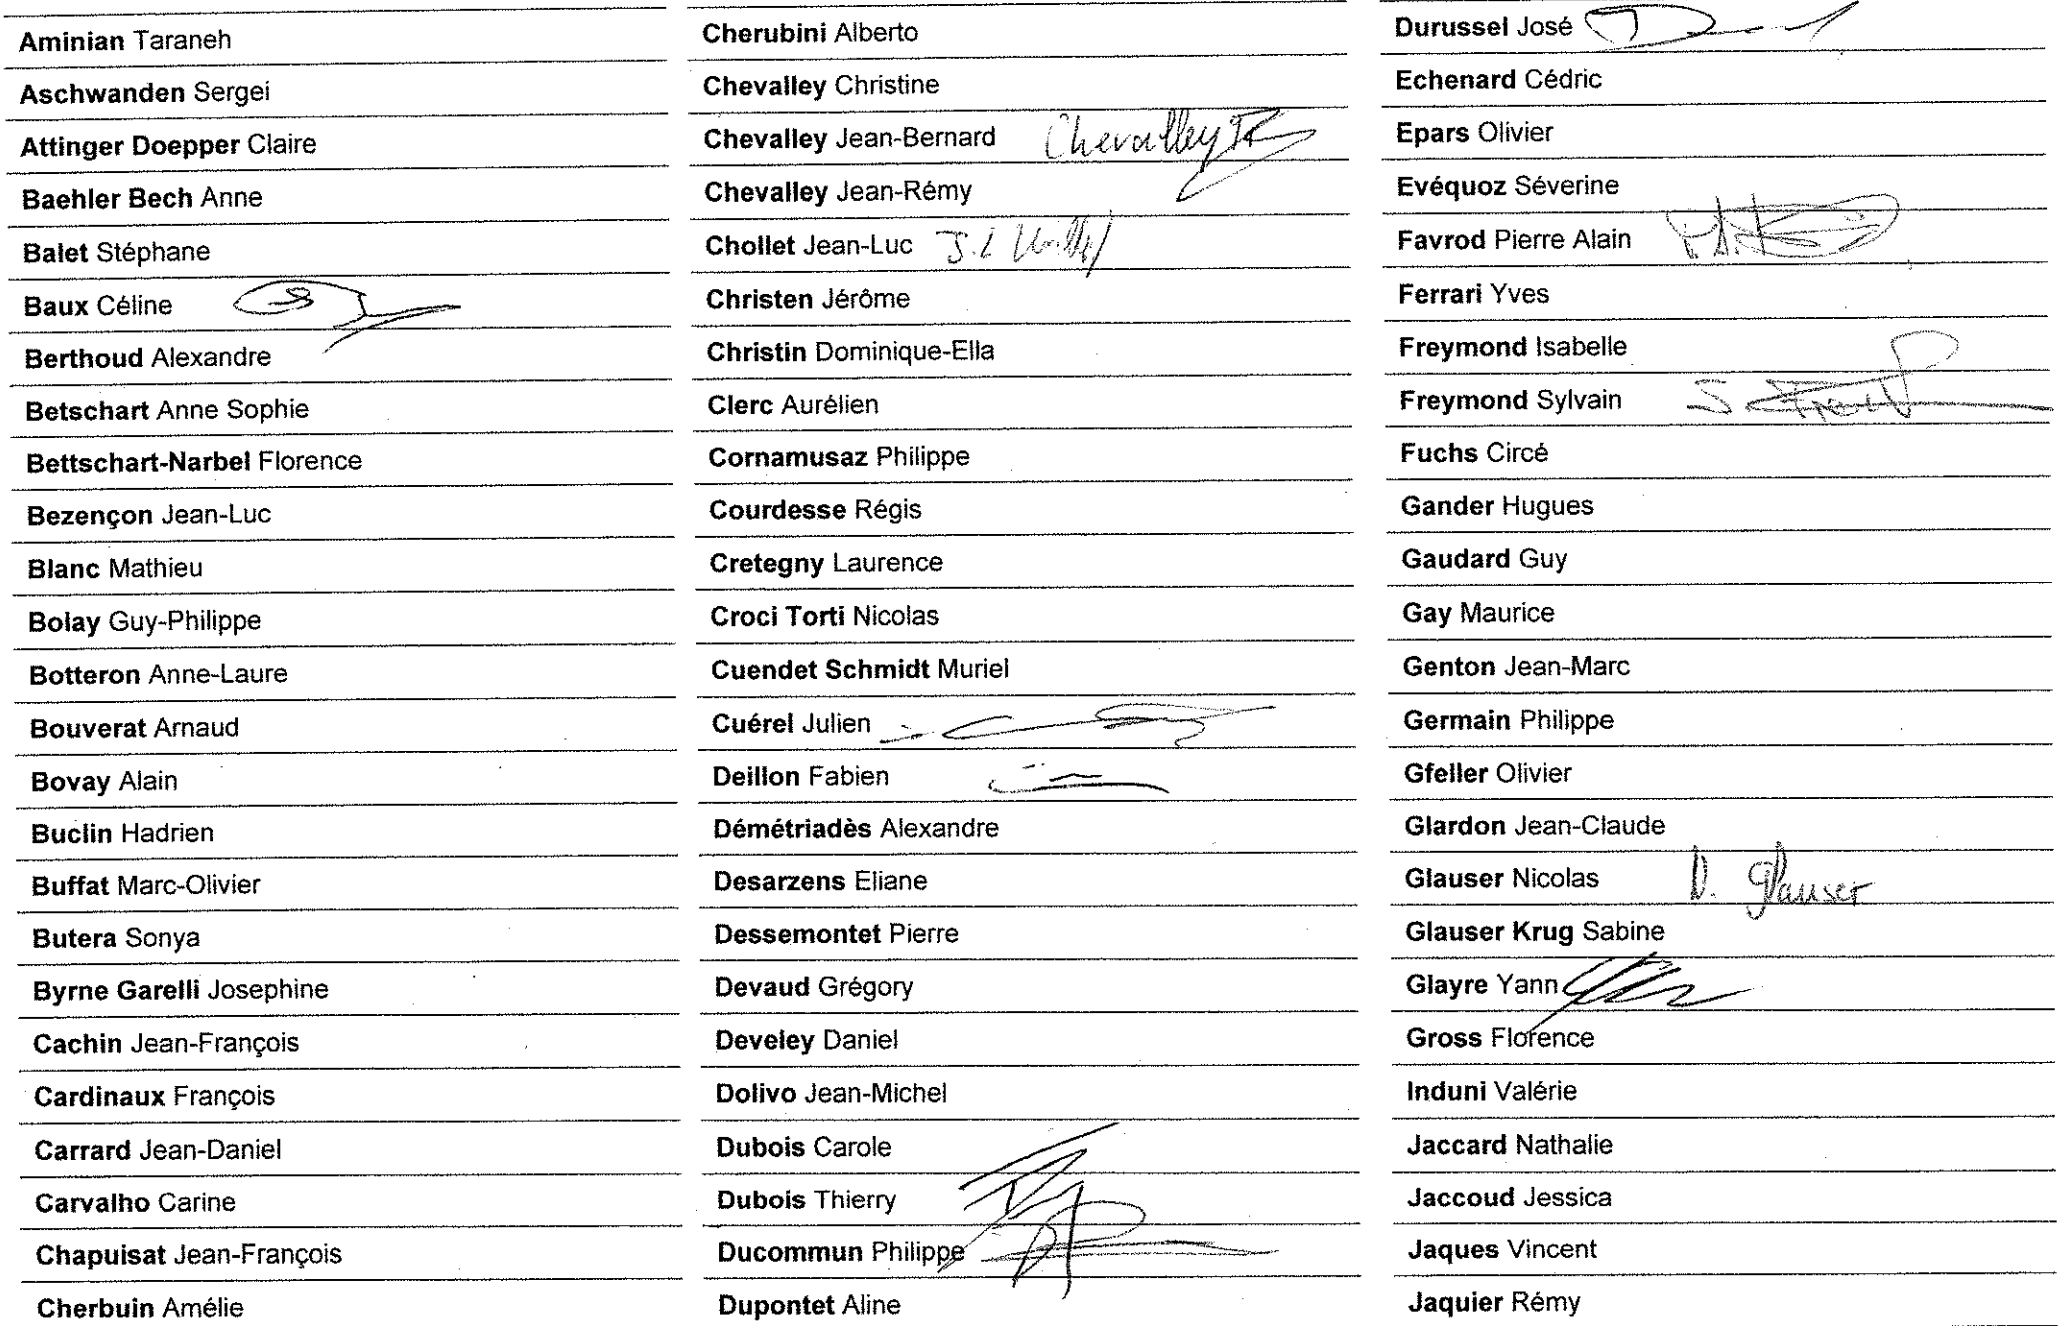 Aminian Taraneh
Aschwanden Sergei
Attinger Doepper Claire
Baehler Bech Anne
Balet Stéphane
Baux Céline
Berthoud Alexandre
Betschart Anne Sophie
Bettschart-Narbel Florence
Bezençon Jean-Luc
Blanc Mathieu
Bolay Guy-Philippe
Botteron Anne-Laure
Bouverat Arnaud
Bovay Alain
Buclin Hadrien
Buffat Marc-Olivier
Butera Sonya
Byrne Garelli Josephine
Cachin Jean-François
Cardinaux François
Carrard Jean-Daniel
Carvalho Carine
Chapuisat Jean-François
Cherbuin Amélie
Cherubini Alberto
Chevalley Christine
Chevalley Jean-Bernard Chevalley
Chevalley Jean-Rémy
Chollet Jean-Luc J.L
Christen Jérôme
Christin Dominique-Ella
Clerc Aurélien
Cornamusaz Philippe
Courdesse Régis
Cretegny Laurence
Croci Torti Nicolas
Cuendet Schmidt Muriel
Cuérel Julien
Deillon Fabien
Démétriadès Alexandre
Desarzens Eliane
Dessemontet Pierre
Devaud Grégory
Develey Daniel
Dolivo Jean-Michel
Dubois Carole
Dubois Thierry
Ducommun Philippe
Dupontet Aline
Durussel José
Echenard Cédric
Epars Olivier
Evéquoz Séverine
Favrod Pierre Alain
Ferrari Yves
Freymond Isabelle
Freymond Sylvain
Fuchs Circé
Gander Hugues
Gaudard Guy
Gay Maurice
Genton Jean-Marc
Germain Philippe
Gfeller Olivier
Glardon Jean-Claude
Glauser Nicolas N. Glauser
Glauser Krug Sabine
Glayre Yann
Gross Florence
Induni Valérie
Jaccard Nathalie
Jaccoud Jessica
Jaques Vincent
Jaquier Rémy